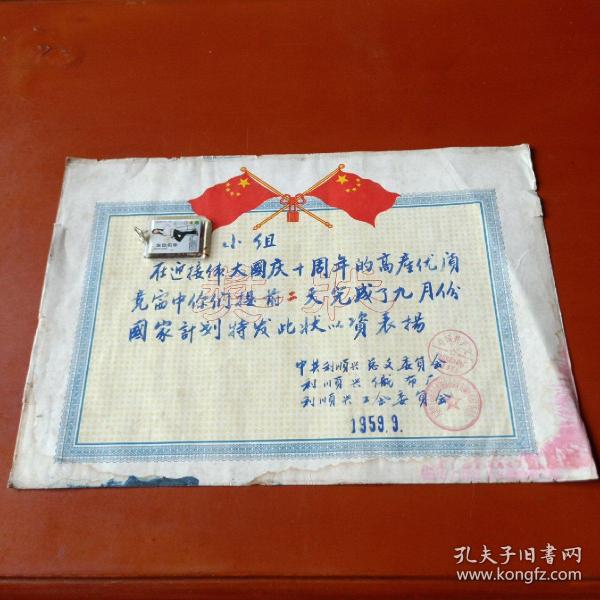 小组
在迎接伟大國庆十周年的高产优质
竞赛中你们提前二天完成了九月份
國家計划特发此状以資表揚
奖状
中共利順兴总支委員会
利順兴織布厂
利順兴工会委員会
1959.9.
孔夫子旧書网
www.kongfz.com